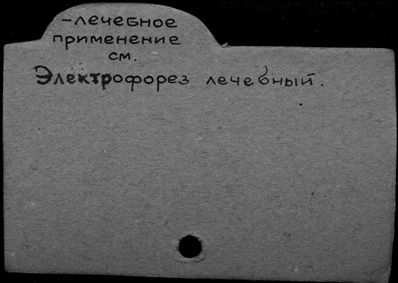 -лечебное
применение
см.
Электрофорез лечебный.